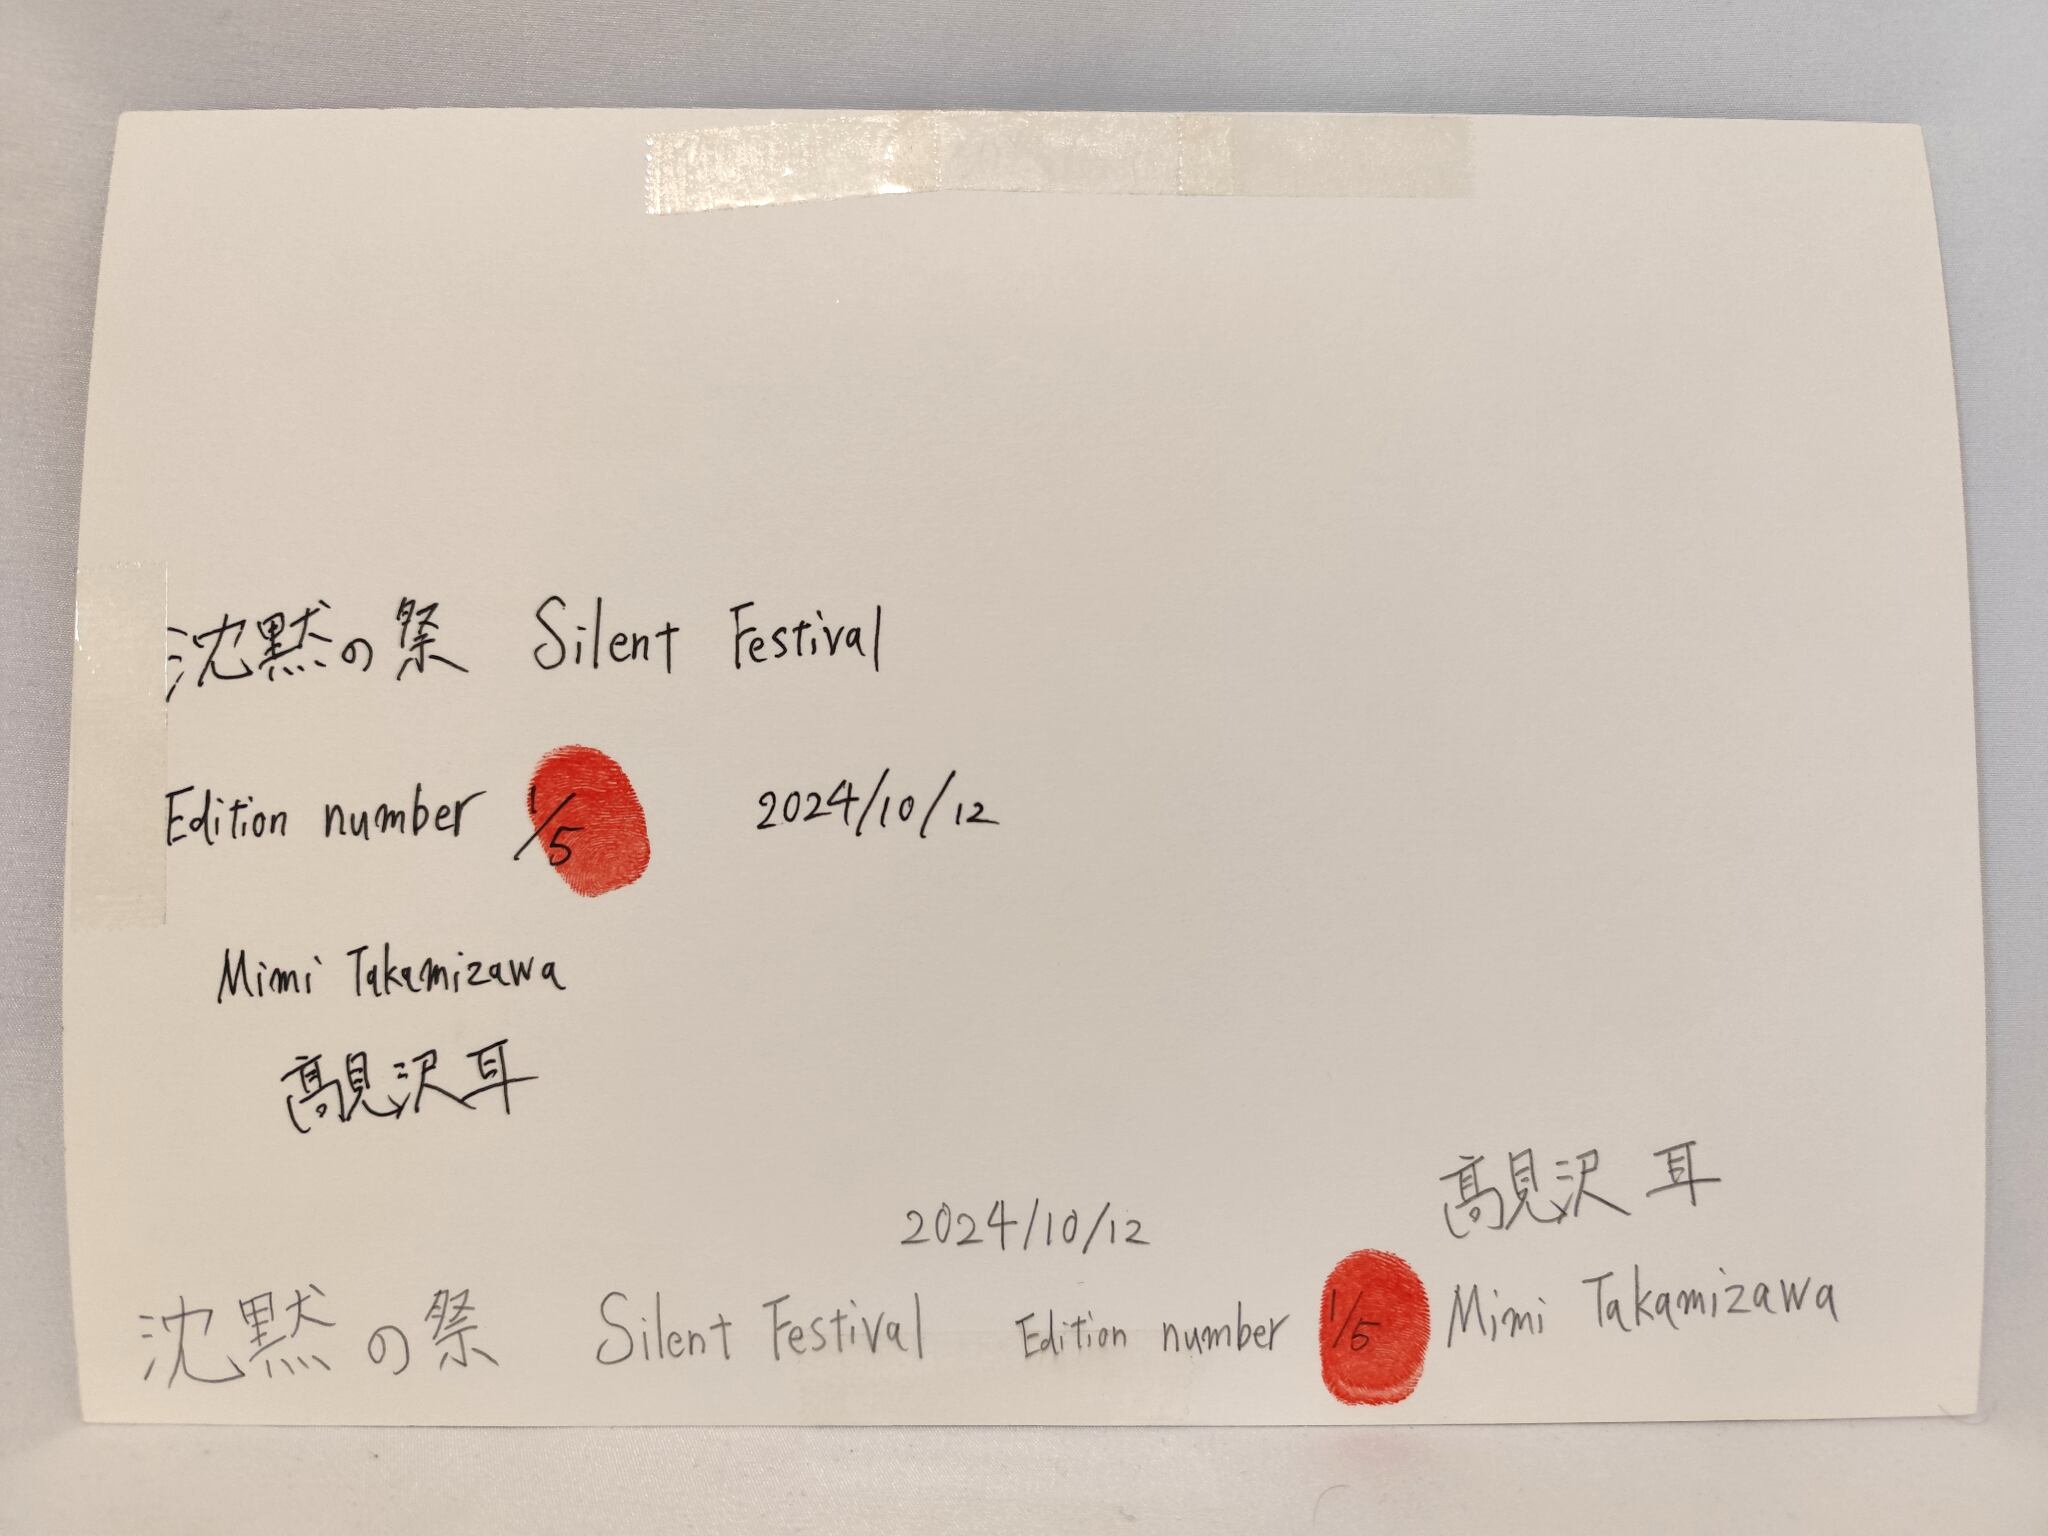 沈黙の祭 Silent Festival
Edition number 1/5 2024/10/12
Mimi Takamizawa
髙見沢耳
髙見沢 耳
2024/10/12
沈黙の祭 Silent Festival Edition number 1/5 Mimi Takamizawa